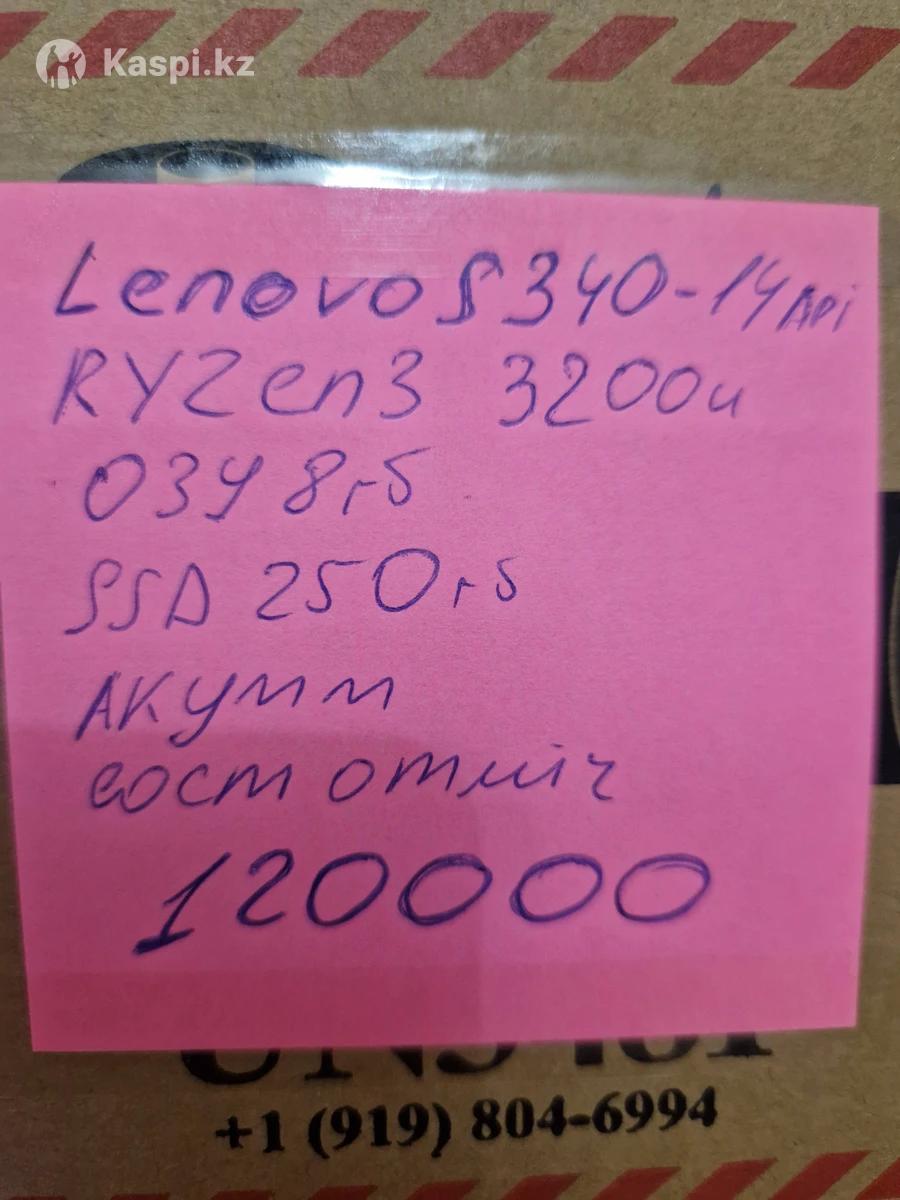 Kaspi.kz
Lenovo S340-14 Api
RYZen3 3200u
ОЗУ 8гб
SSD 250гб
АКумм
сост отлич
120000
+1 (919) 804-6994